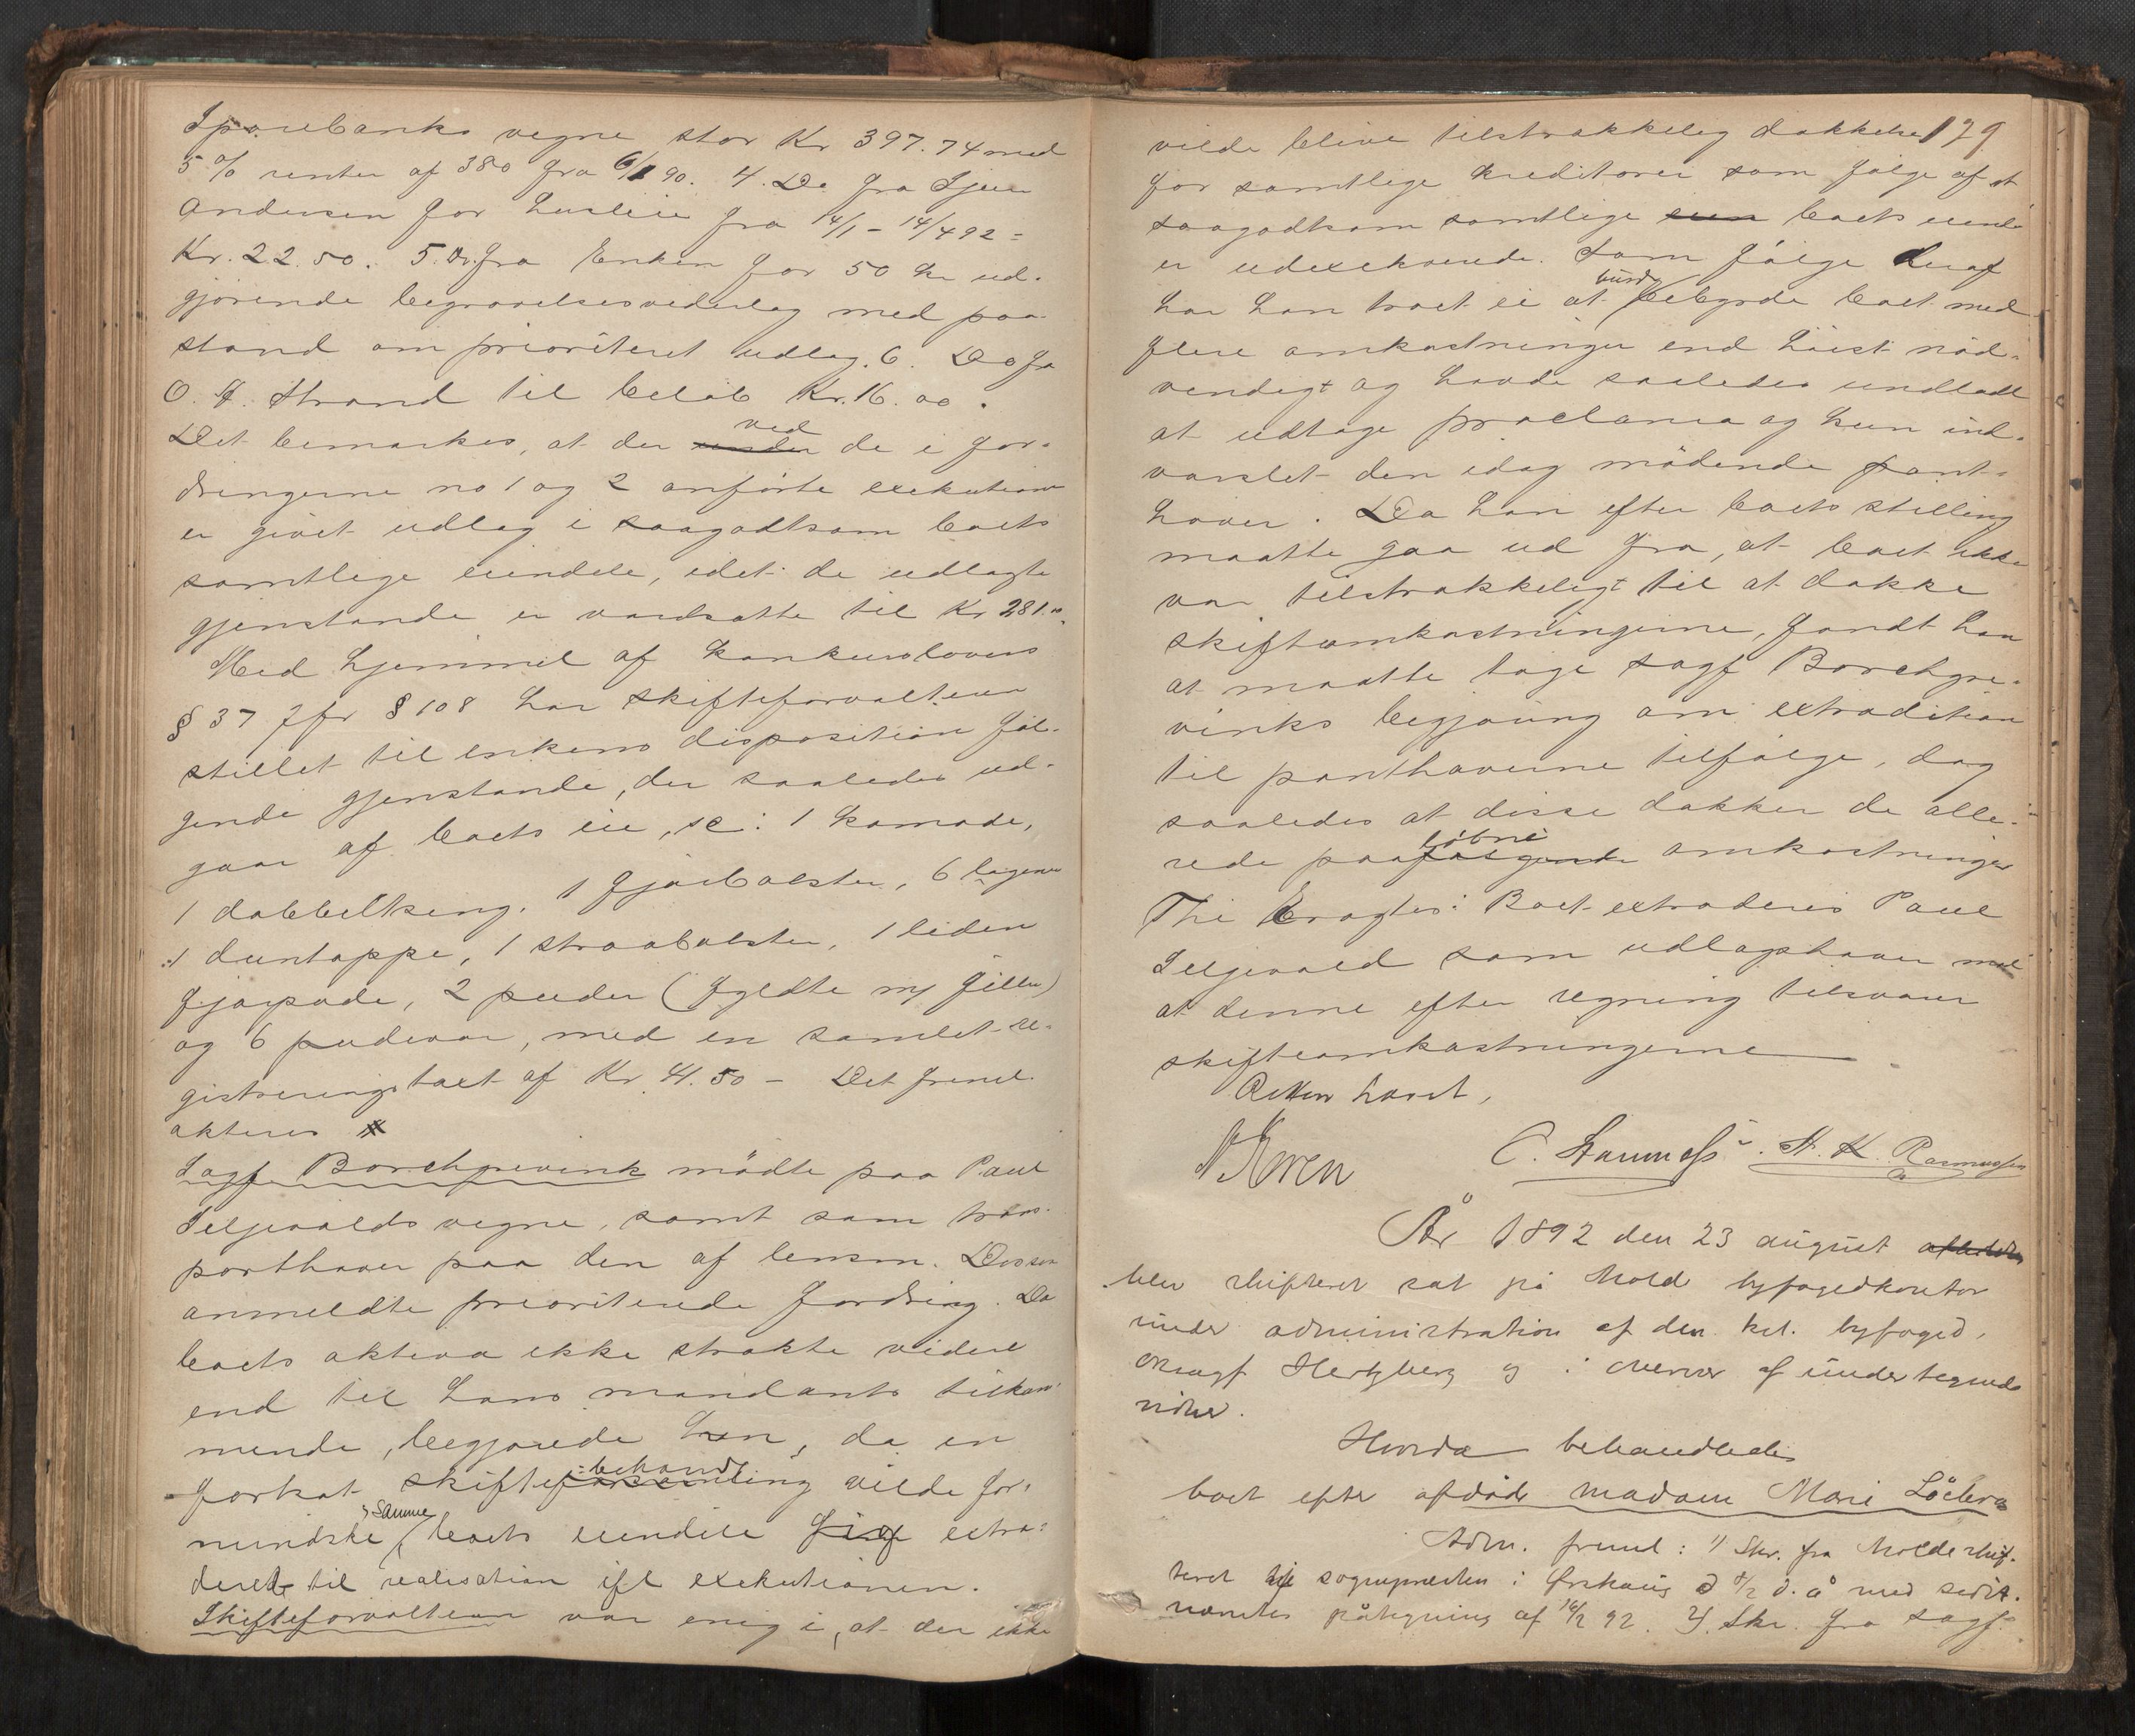 Sparebanks vegne stor Kr 397.74 med
5 % renter af 380 fra 6/1 90. 4. Do fra
Andersen for husleie fra 14/1 - 14/4 92 =
Kr. 22.50. 5. Do. fra Enken for 50 Kr ud-
gjørende begravelsesvederlag med paa-
stand om prioriteret udlæg. 6. Do fra
O. Strand til beløb Kr. 16.00.
Det bemærkes, at der under ved de i for-
dringerne no 1 og 2 anførte exekutioner
er givet udlæg i saagodtsom boets
samtlige eiendele, idet de udlagte
gjenstande er værdsatte til Kr 281.
Med hjemmel af konkurslovens
§ 37 jfr § 108 har skifteforvalteren
stillet til enkens disposition føl-
gende gjenstande, der saaledes ud-
gaar af boets eie, sc: 1 komode,
1 dobbeltseng, 1 fjærbolster, 6 lagener
1 duntæppe, 1 straabolster, 1 liden
fjærpude, 2 puder (fyldte m/ )
og 6 pudevar, med en samlet re-
gistreringstaxt af Kr 41.50 - Det freml.
akteres
Sagf Borchgrevink mødte paa Paul
Seljevolds vegne, samt som trans-
porthaver paa den af lensm.
anmeldte prioriterede fordring. Da
boets aktiva ikke strakte videre
end til hans mandants tilkom-
mende, begjærede han, da en
fortsat skifteforsamling behandl vilde for-
mindske samme, boets eiendele extra-
deret til realisation ifl exekutionen.
Skifteforvalteren var enig i, at der ikke
179
vilde blive tilstrækkelig dækkelse
for samtlige kreditorer som følge af at
saagodtsom samtlige boets eiend.
er udexekverede. Som følge deraf
har han troet ei at burde bebyrde boet med
flere omkostninger end høist nød-
vendigt og havde saaledes undladt
at udtage proclama og kun ind-
varslet den idag mødende pant-
haver. Da han efter boets stilling
maatte gaa ud fra, at boet ikke
var tilstrækkeligt til at dække
skifteomkostningerne, fandt han
at maatte tage sagf Borchgre-
vinks begjæring om extradition
til panthaverne tilfølge, dog
saaledes at disse dækker de alle-
rede paafølgende løbne omkostninger
Thi Eragtes: Boet extraderes Paul
Seljevold som udlægshaver mod
at denne efter regning tilsvarer
skifteomkostningerne
Retten hævet,
C. St. K. Rasmussen
År 1892 den 23 august
blev skifteret sat på Molde byfogedkontor
under administration af den kst. byfoged,
Hertzberg og i overvær af undertegnede
vidner.
Hvorda behandledes
boet efter afdøde madam Mari
Adm. freml: 1) Skr. fra Molde skif-
teret til sognepresten i Ørskoug d. å med sidst-
nævntes påtegning af 92. 2) Skr. fra sagf.